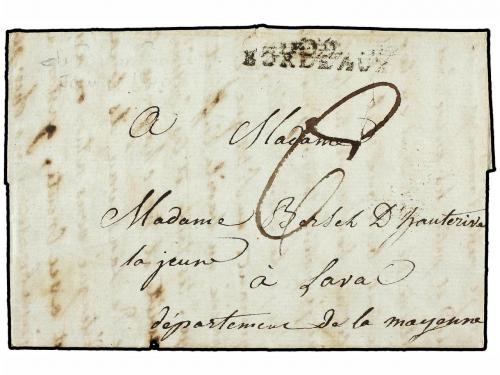 BORDEAUX
A Madame
Madame D'hauterive
la jeune
à Laval
département de la mayenne